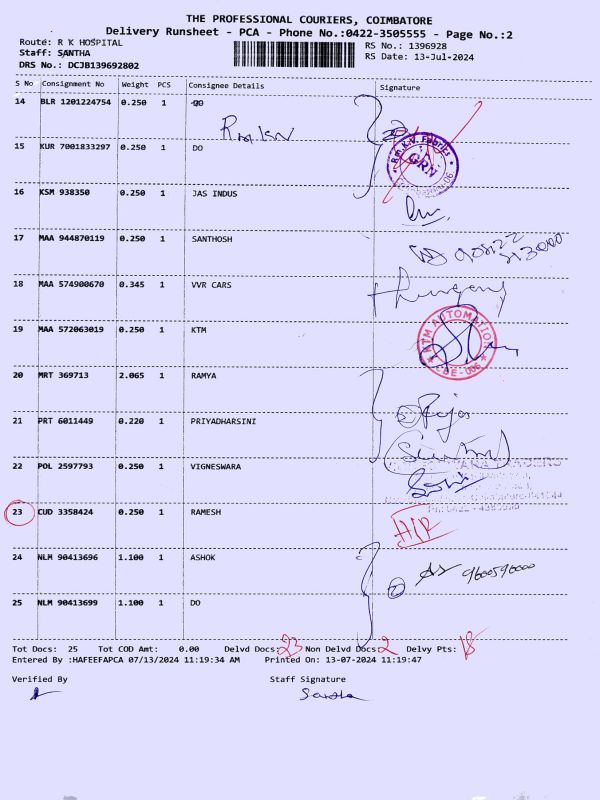 THE PROFESSIONAL COURIERS, COIMBATORE
Delivery Runsheet - PCA - Phone No.:0422-3505555 - Page No.:2
Route: R K HOSPITAL
RS No.: 1396928
Staff: SANTHA
RS Date: 13-Jul-2024
DRS No.: DCJB139692802
S No Consignment No Weight PCS Consignee Details Signature
14 BLR 1201224754 0.250 1 DO
15 KUR 7001833297 0.250 1 DO
R.m.K.V. Fabrics
GRN
16 KSM 938350 0.250 1 JAS INDUS
17 MAA 944870119 0.250 1 SANTHOSH
18 MAA 574900670 0.345 1 VVR CARS
19 MAA 572063019 0.250 1 KTM
KTM AUTOMATION
CBE-006
20 MRT 369713 2.065 1 RAMYA
21 PRT 6011449 0.220 1 PRIYADHARSINI
22 POL 2597793 0.250 1 VIGNESWARA
23 CUD 3358424 0.250 1 RAMESH
24 NLM 90413696 1.100 1 ASHOK
25 NLM 90413699 1.100 1 DO
Tot Docs: 25 Tot COD Amt: 0.00 Delvd Docs: 23 Non Delvd Docs: 2 Delvy Pts: 18
Entered By :HAFEEFAPCA 07/13/2024 11:19:34 AM Printed On: 13-07-2024 11:19:47
Verified By Staff Signature